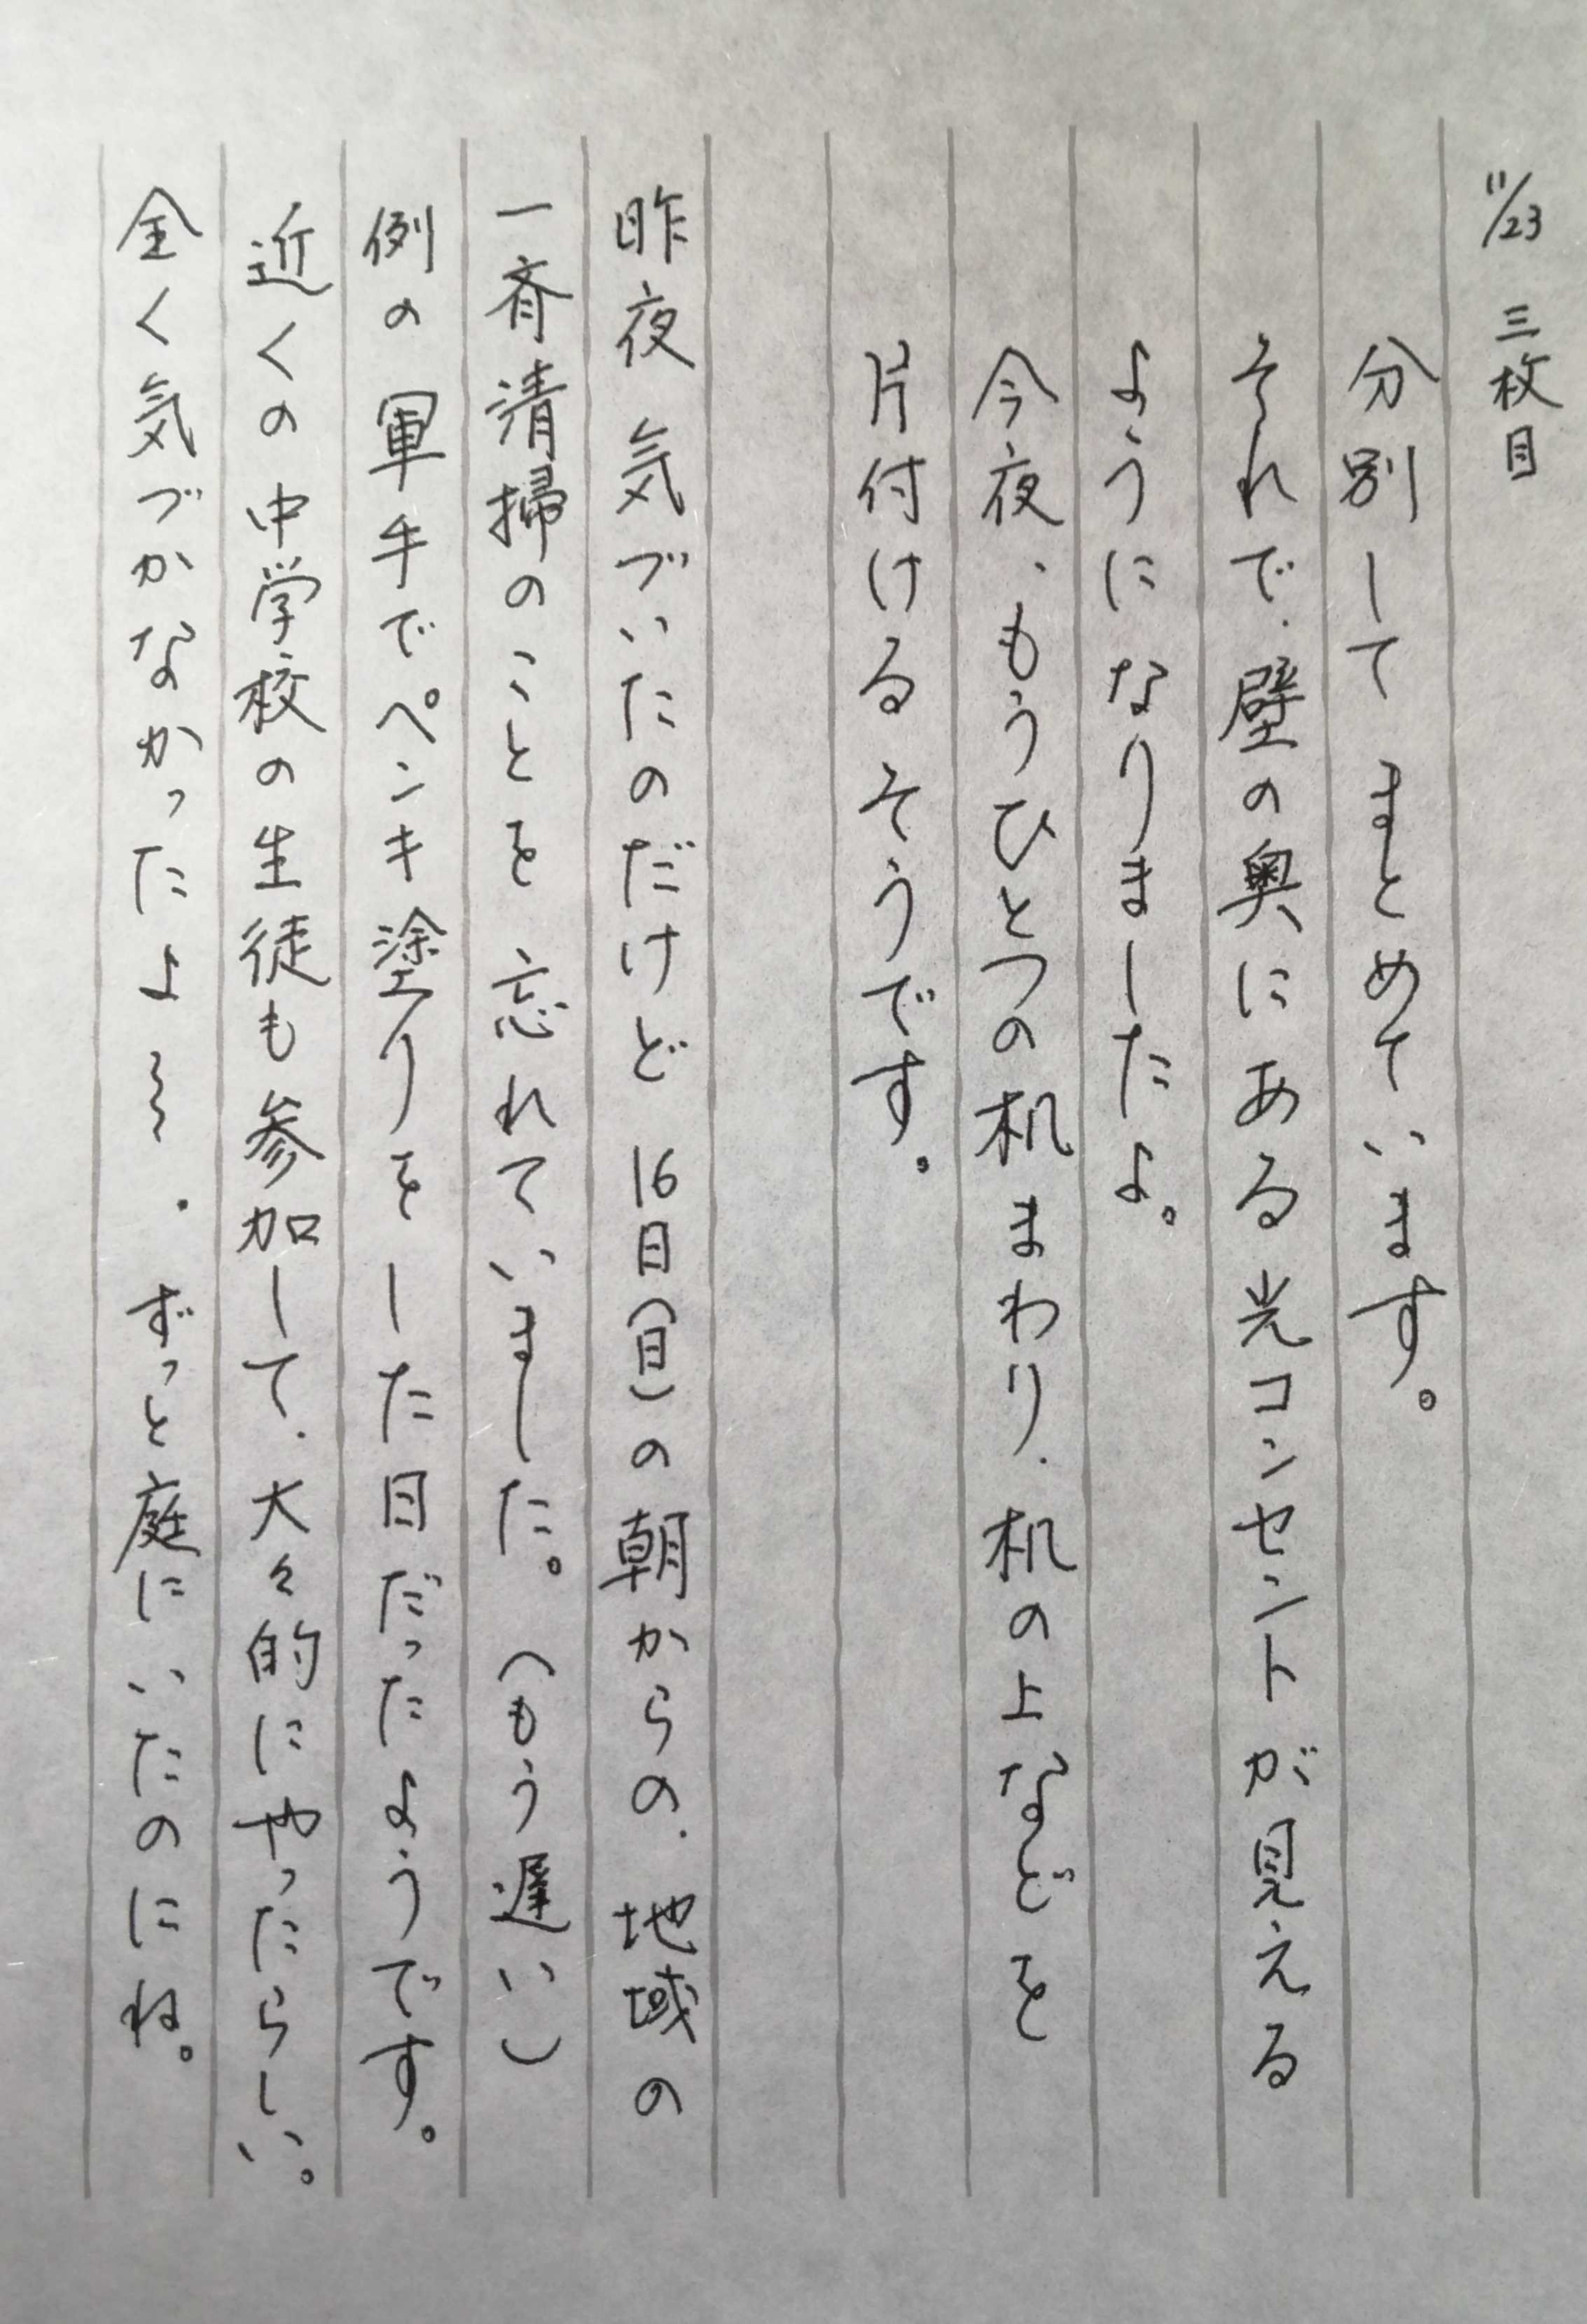 11/23 三枚目
分別して まとめています。
それで、壁の奥にある光コンセントが見える
ようになりましたよ。
今夜、もうひとつの机まわり、机の上などを
片付けるそうです。
昨夜 気づいたのだけど 16日(日)の朝からの、地域の
一斉清掃のことを 忘れていました。(もう遅い)
例の 軍手でペンキ塗りをした日だったようです。
近くの中学校の生徒も参加して、大々的にやったらしい。
全く気づかなかったよ〜〜。ずっと庭に いたのにね。